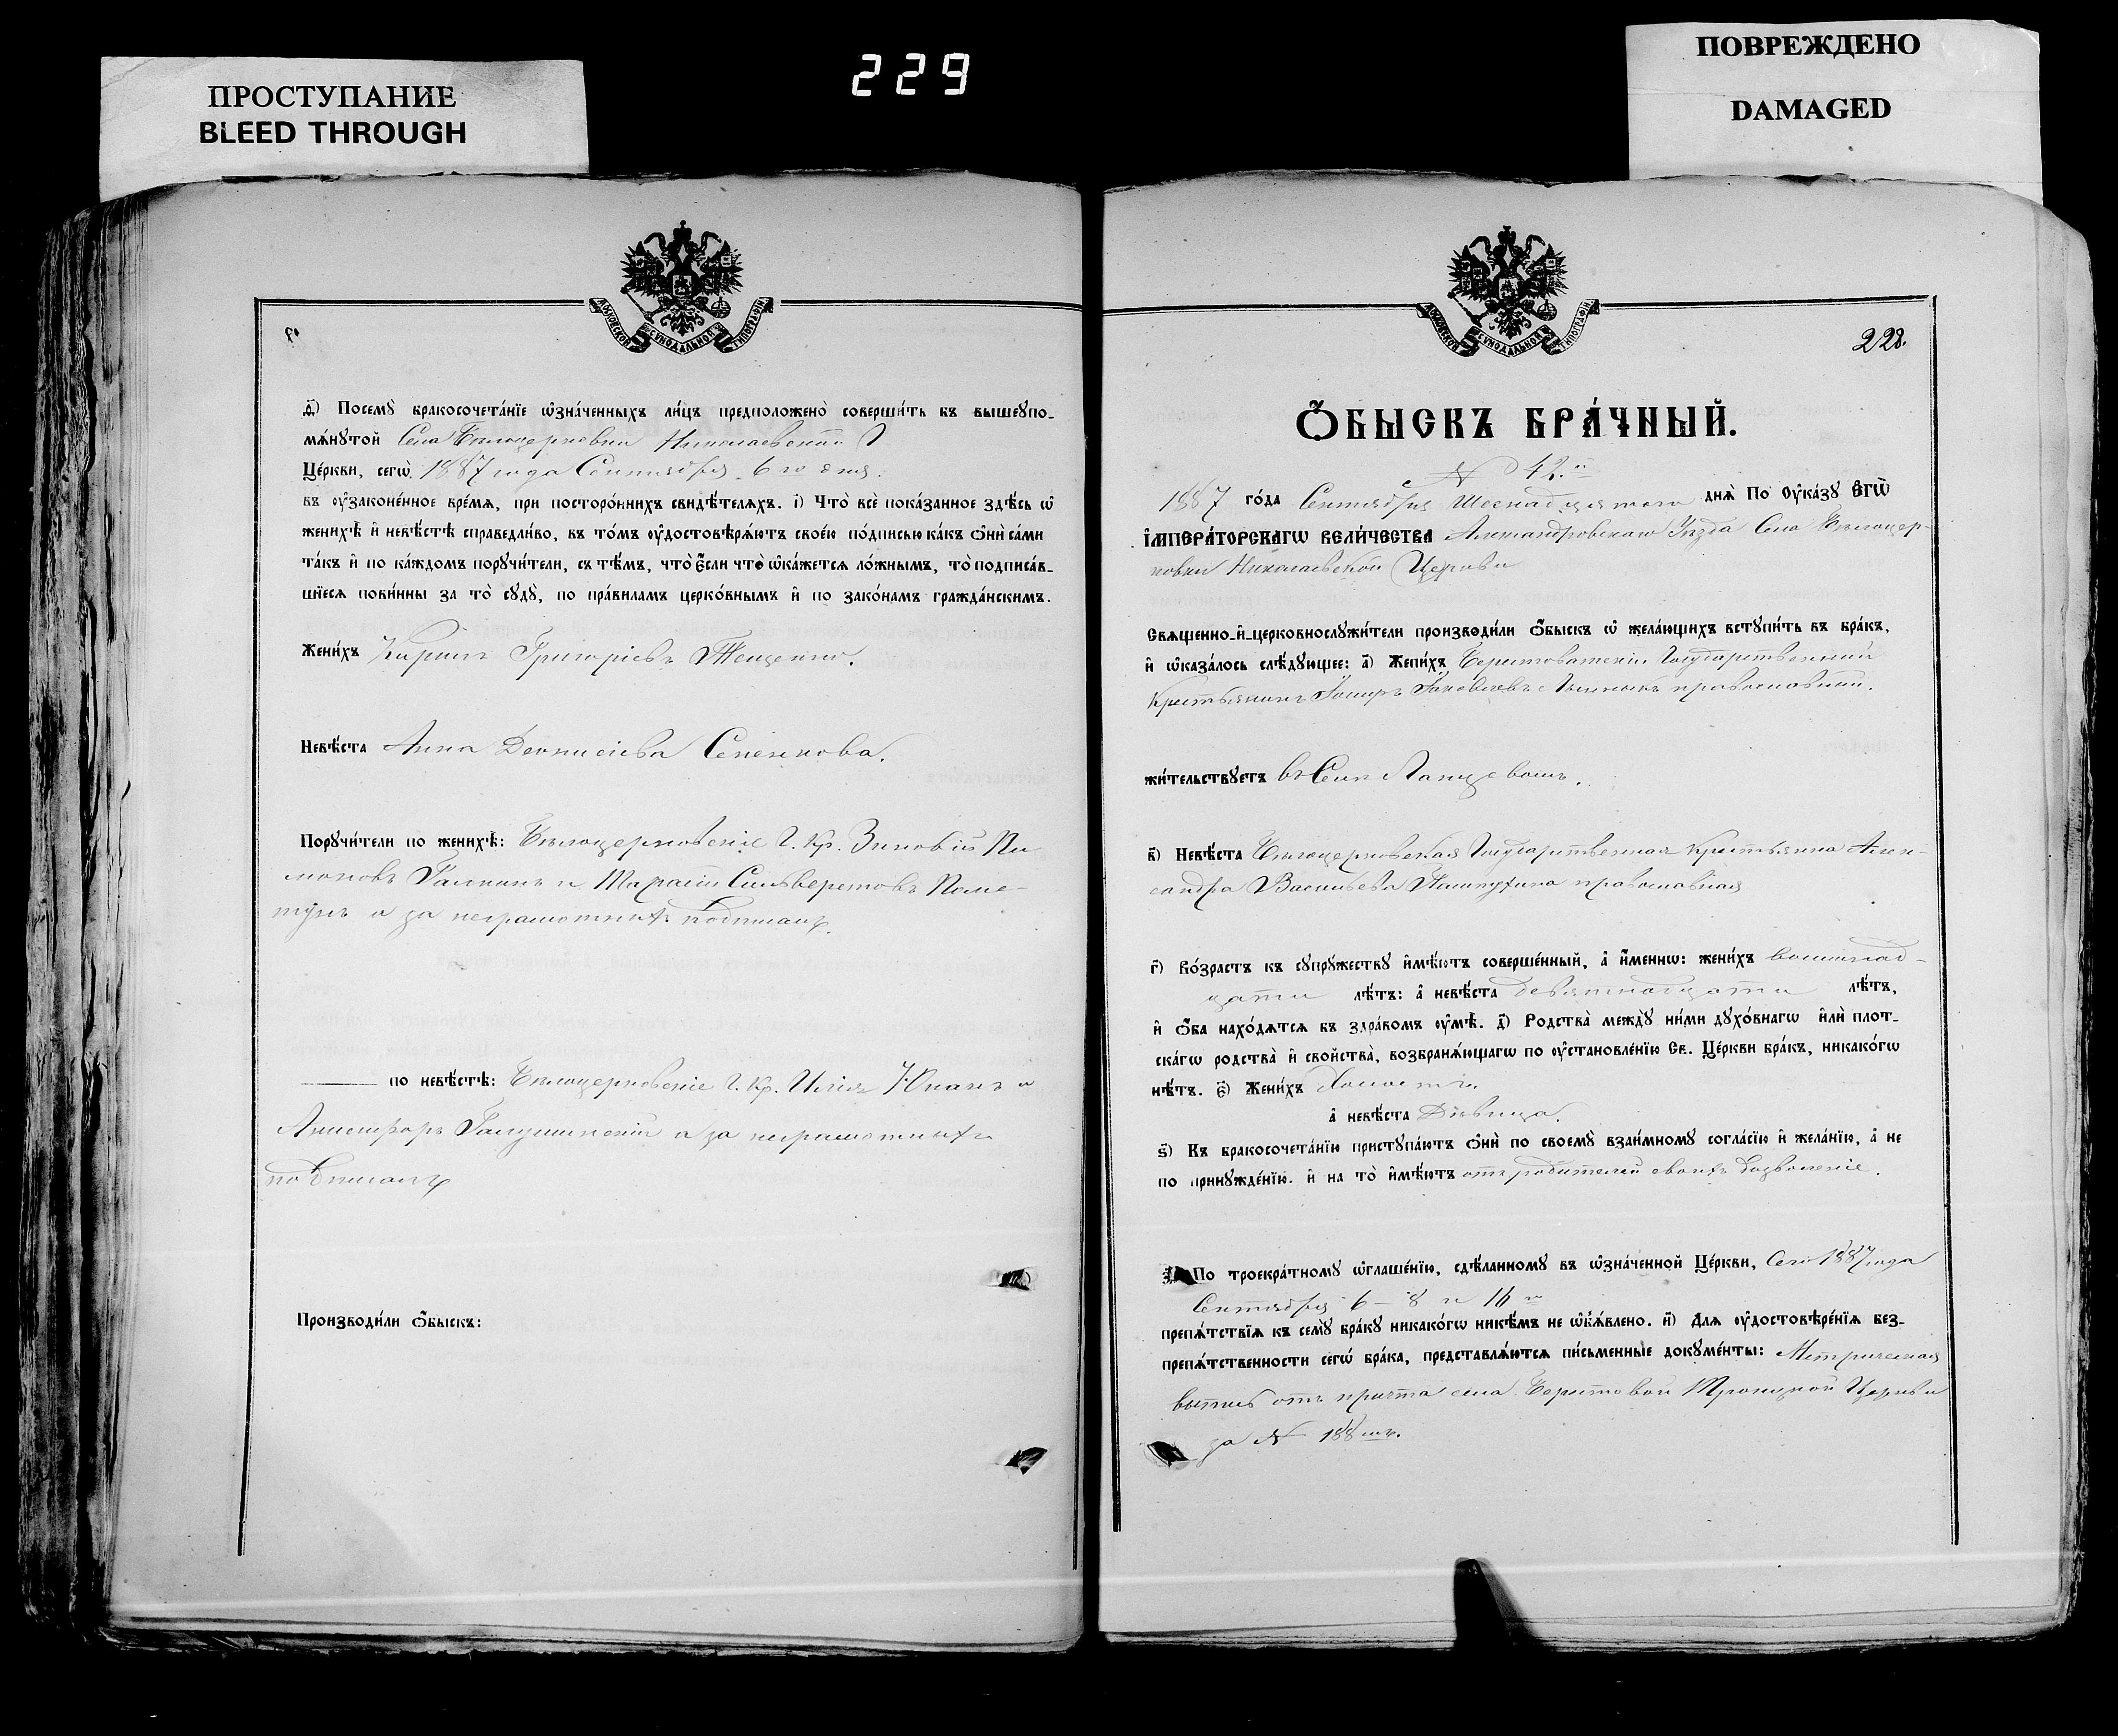 ПРОСТУПАНИЕ
BLEED THROUGH
229
ПОВРЕЖДЕНО
DAMAGED
МОСКОВСКОЙ СѴНОДАЛЬНОЙ ТИПОГРАФІИ
ѳ҃) Посемꙋ̀ бракосочета́нїе ѡ҆зна́ченныхъ ли́цъ предположено̀ соверши́ть въ вышеꙋпо-
мѧ́нꙋтой Села Бѣлоцерковки Николаевской
Це́ркви, сегѡ̀ 1887 года Сентября 6 го дня.
въ ᲂу҆законе́нное вре́мѧ, при посторо́ннихъ свидѣ́телѧхъ. і҃) Что̀ всѐ пока́занное здѣ́сь ѡ҆
женихѣ̀ и҆ невѣ́стѣ справедли́во, въ то́мъ ᲂу҆достовѣрѧ́ютъ свое́ю по́дписью ка́къ ѻ҆нѝ са́ми
та́къ и҆ по ка́ждомъ порꙋчи́тели, съ тѣ́мъ, что̀ є҆́сли что̀ ѡ҆ка́жетсѧ ло́жнымъ, то̀ подписа́в-
шїесѧ пови́нны за то̀ сꙋдꙋ̀, по пра́виламъ церко́внымъ и҆ по зако́намъ гражда́нскимъ.
Жени́хъ Кирилъ Григоріевъ Тещенко.
Невѣ́ста Анна Деонисіева Семенкова.
Порꙋчи́тели по женихѣ̀: Бѣлоцерковскіе Г. Кр. Зиновій
и Тарасій Сильверстовъ
а за неграмотныхъ
по невѣ́стѣ: Бѣлоцерковскіе Г. Кр. Илія Юханъ и
а за неграмотныхъ
Производи́ли ѻ҆́быскъ:
МОСКОВСКОЙ СѴНОДАЛЬНОЙ ТИПОГРАФІИ
228.
Ѻ҆́БЫСКЪ БРА́ЧНЫЙ.
N 42.
1887 го́да Сентября Шеснадцятаго днѧ̀ По ᲂу҆ка́зꙋ Є҆ГѠ̀
І҆МПЕРА́ТОРСКАГѠ ВЕЛИ́ЧЕСТВА Александровскаго Уѣзда Села Бѣлоцер-
ковки Николаевской Церкви
Свѧщенно-и҆-церковнослꙋжи́тели производи́ли ѻ҆́быскъ ѡ҆ жела́ющихъ вступи́ть въ бра́къ,
и҆ ѡ҆каза́лось слѣ́дꙋющее: а҃) Жени́хъ Берестоватскій Государственный
Крестьянинъ Іосифъ Яковлевъ православный.
жи́тельствꙋетъ въ Селѣ
в҃) Невѣ́ста Бѣлоцерковская Государственная Крестьянка Алек-
сандра Васильева православная
г҃) Во́зрастъ къ сꙋпрꙋ́жествꙋ и҆мѣ́ютъ соверше́нный, а҆ и҆́меннѡ: жени́хъ восемнад-
цати лѣ́тъ: а҆ невѣ́ста девятнадцати лѣ́тъ,
и҆ ѻ҆́ба нахо́дѧтсѧ въ здра́вомъ ᲂу҆мѣ̀. д҃) Родства̀ междꙋ̀ ни́ми дꙋхо́внагѡ и҆лѝ плот-
ска́гѡ родства̀ и҆ свойства̀, возбранѧ́ющагѡ по ᲂу҆становле́нїю Св. Це́ркви бра́къ, никако́гѡ
нѣ́тъ. є҃) Жени́хъ Холостъ
а҆ невѣ́ста Дѣвица.
ѕ҃) Къ бракосочета́нїю пристꙋпа́ютъ ѻ҆нѝ по своемꙋ̀ взаи́мномꙋ согла́сїю и҆ жела́нїю, а҆ не
по принꙋжде́нїю. и҆ на то̀ и҆мѣ́ютъ отъ родителей своихъ дозволеніе.
По троекра́тномꙋ ѡ҆глаше́нїю, сдѣ́ланномꙋ въ ѡ҆зна́ченной Це́ркви, Сего 1887 года
Сентября 6 – 8 и
препѧ́тствїѧ къ семꙋ̀ бра́кꙋ никако́гѡ никѣ́мъ не ѡ҆б̾ѧ́влено. и҃) Длѧ ᲂу҆достовѣре́нїѧ без-
препѧ́тственности сегѡ̀ бра́ка, представлѧ́ютсѧ пи́сьменные докꙋме́нты: Метрическая
выпись отъ причта села Берестовой Троицкой Церкви
за N 188